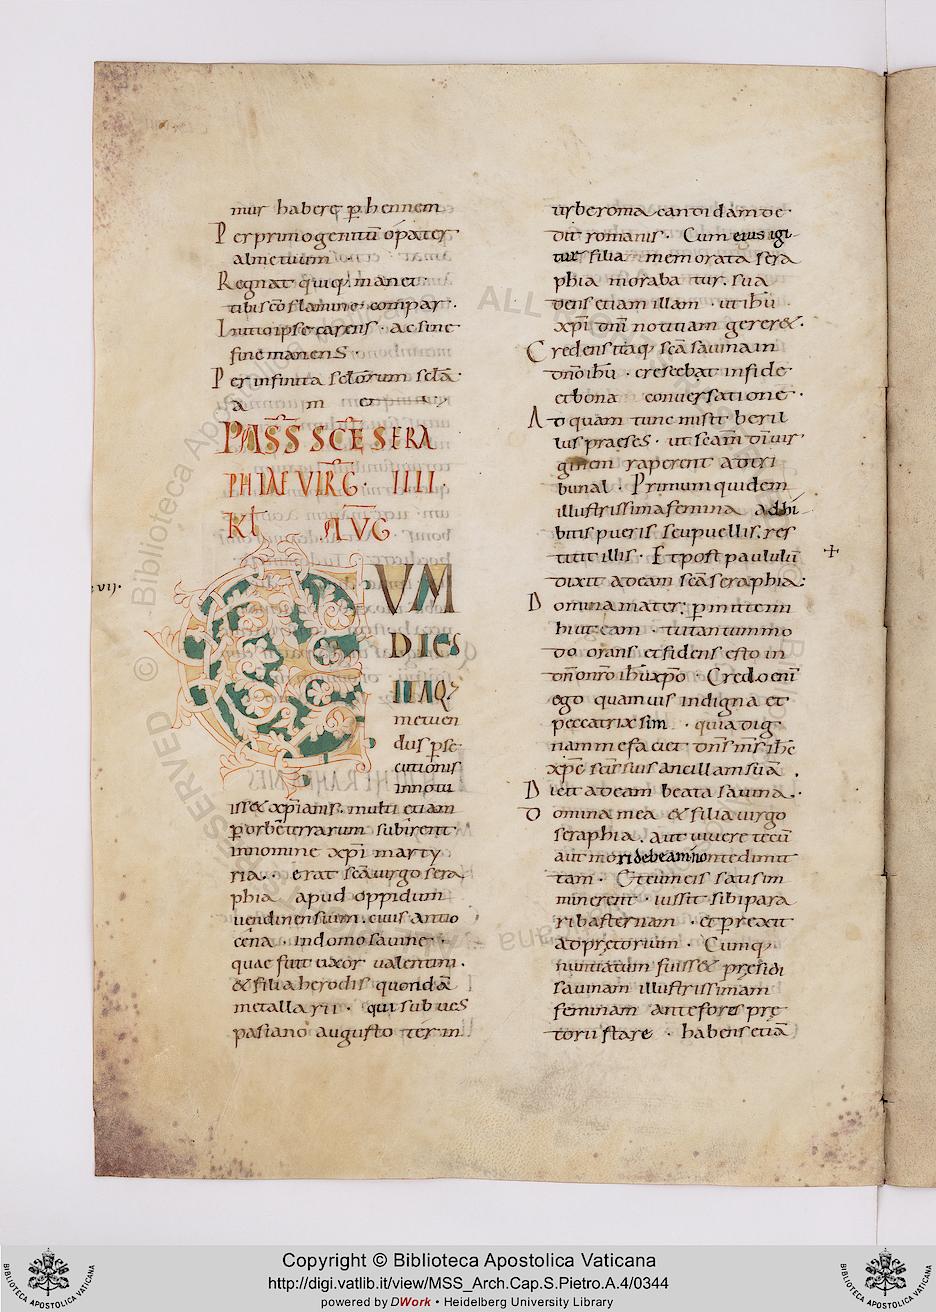 mur habere p̄ hennem
Per primogenitū o pater
abnetuum
Regnat quiq; manet
tibi sc̄o flamine compar.
Initio ipse carens · ac sine
fine manens ·
Per infinita sc̄lorum sc̄la
a m en
PASS SC̄E SERA
PHIAE VIRḠ · IIII ·
KL̄ AVḠ
vij ·
CUM
DIES
ITAQ;
metuen
dus p̄se
cutionis
innotu
isset xp̄ianis. multi etiam
p̄ orbē terrarum subirent
in nomine xp̄i marty
ria. erat sc̄a virgo sera
phia apud oppidum
uendinensium. cuius antio
cena · in domo sauine ·
quae fuit uxor ualentini.
& filia herodis quondā
metallarii · qui sub ues
pasiano augusto ter in
urbe roma candidam de
dit romanis · Cum eius igi
tur filia memorata sera
phia moraba tur. sua
dens etiam illam · ut ihū
xp̄i dn̄i notitiam gereret·
Credens itaq; sc̄a sauina in
dn̄o ihū · crescebat in fide
et bona conuersatione ·
Ad quam tunc misit beril
lus praeses · ut sc̄am dī uir
ginem raperent ad tri
bunal · Primum quidem
illustrissima femina adhi
bitis pueris seu puellis. res
titit illis · Et post paululū +
dixit ad eam sc̄a seraphia:
Domina mater; p̄mitte m
hi ut eam · tu tantummo
do orans et fidens esto in
dn̄o nr̄o ihū xp̄o · Credo eni
ego quamuis indigna et
peccatrix sim · quia dig
nam me faciet dn̄s m̄s ihc̄
xp̄c seruis suis ancillam suā.
Dicit ad eam beata sauina.
Domina mea & filia virgo
seraphia. aut uiuere tecū
aut mori debeam non te dimit
tam · Et cum eis satis im
minerent · iussit sibi para
ri basternam · et p̄rexit
ad pretorium · Cumq;
nuntiatum fuisset presidi
sauinam illustrissimam
feminam ante fores pre
torii stare · habens etiā
Copyright © Biblioteca Apostolica Vaticana
http://digi.vatlib.it/view/MSS_Arch.Cap.S.Pietro.A.4/0344
powered by DWork • Heidelberg University Library